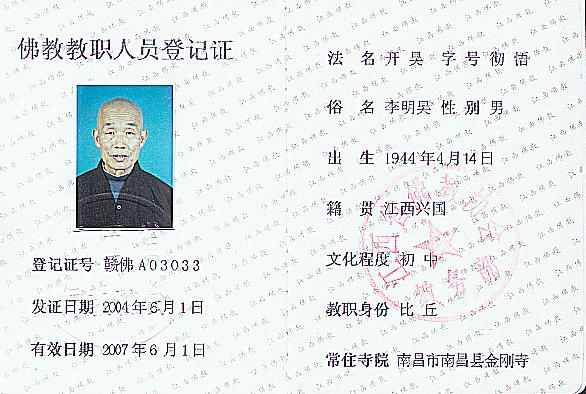 佛教教职人员登记证
登记证号 赣佛A03033
发证日期 2004年6月1日
有效日期 2007年6月1日
法 名 开昊 字号 彻悟
俗 名 李明昊 性别 男
出 生 1944年4月14日
籍 贯 江西兴国
文化程度 初中
教职身份 比丘
常住寺院 南昌市南昌县金刚寺
江西省佛教协会